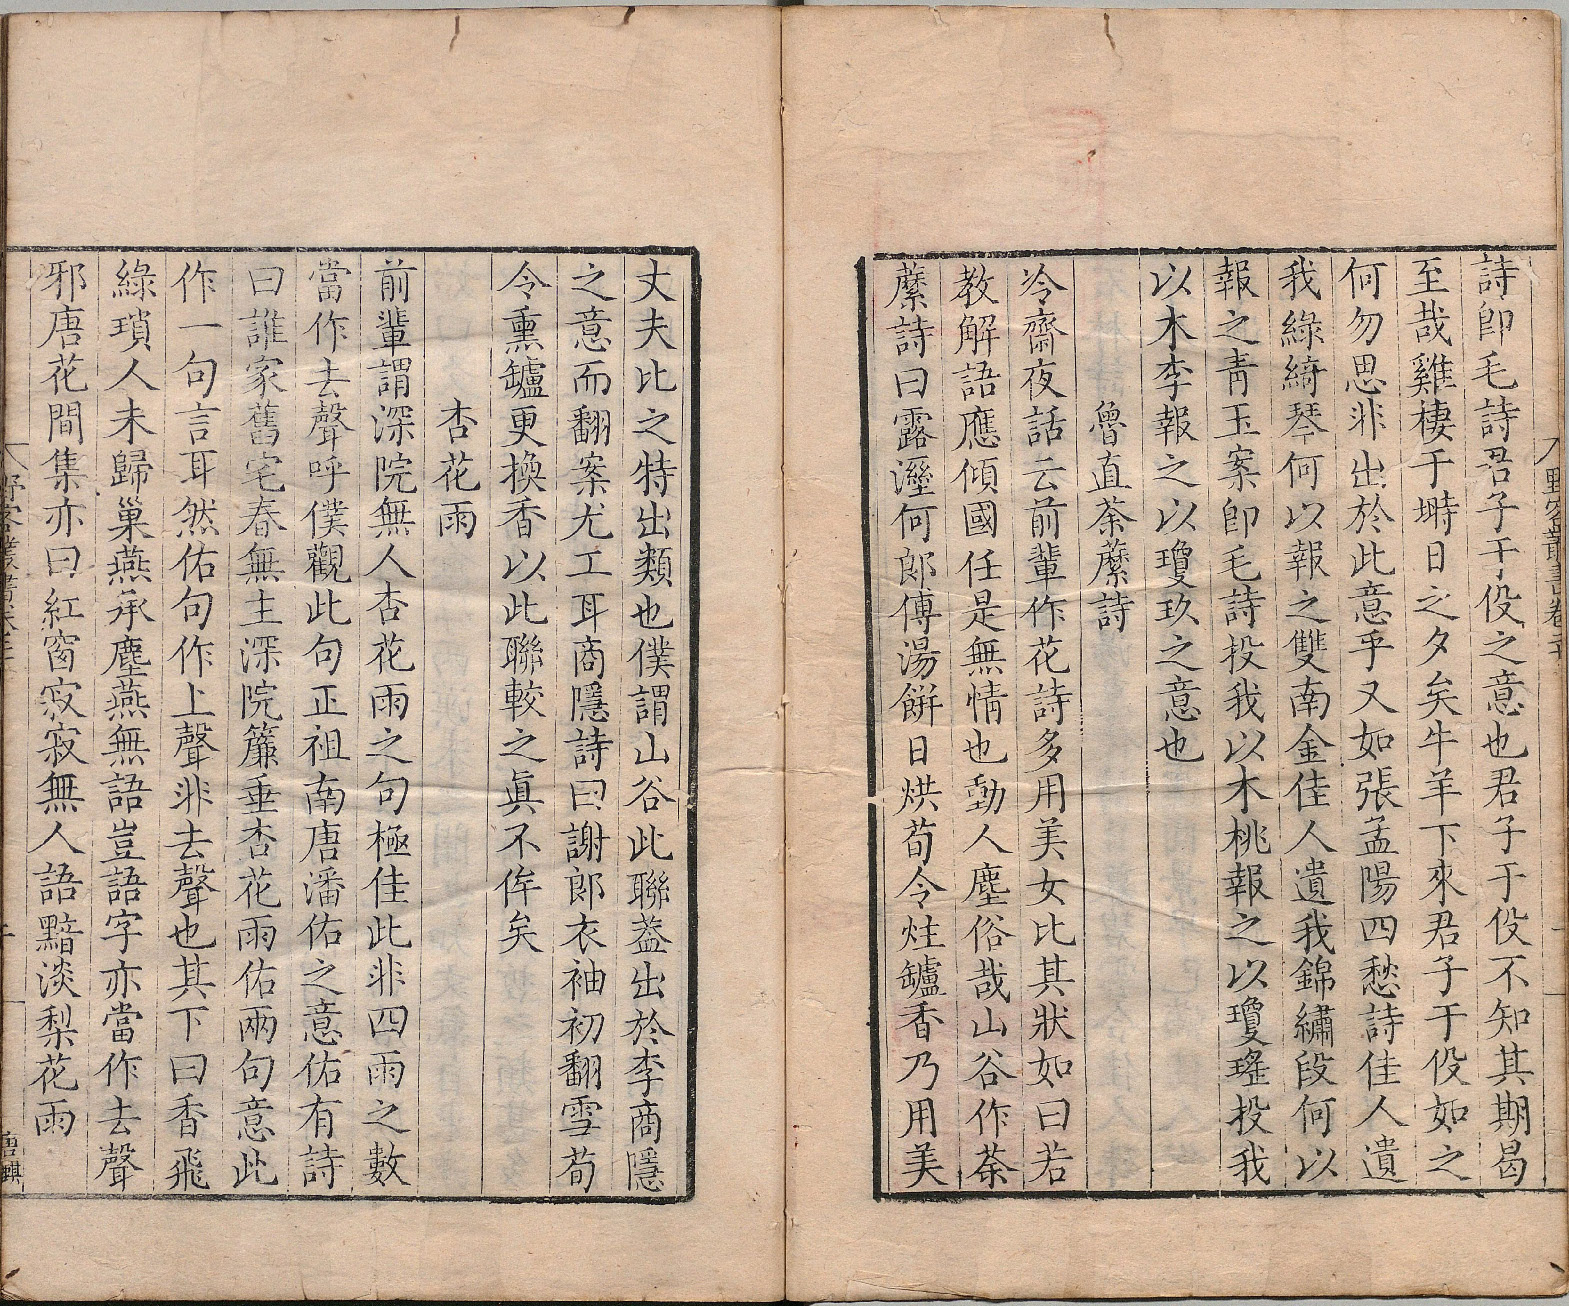 詩卽毛詩君子于役之意也君子于役不知其期曷
至哉雞棲于塒日之夕矣牛羊下來君子于役如之
何勿思非出於此意乎又如張孟陽四愁詩佳人遺
我綠綺琴何以報之雙南金佳人遺我錦繡段何以
報之青玉案卽毛詩投我以木桃報之以瓊瑤投我
以木李報之以瓊玖之意也
魯直荼蘼詩
冷齋夜話云前輩作花詩多用美女比其狀如曰若
教解語應傾國任是無情也動人塵俗哉山谷作荼
蘼詩曰露溼何郎傅湯餅日烘荀令炷鑪香乃用美
丈夫比之特出類也僕謂山谷此聯葢出於李商隱
之意而翻案尤工耳商隱詩曰謝郎衣袖初翻雪荀
令熏鑪更換香以此聯較之眞不侔矣
杏花雨
前輩謂深院無人杏花雨之句極佳此非四雨之數
當作去聲呼僕觀此句正祖南唐潘佑之意佑有詩
曰誰家舊宅春無主深院簾垂杏花雨佑兩句意此
作一句言耳然佑句作上聲非去聲也其下曰香飛
綠瑣人未歸巢燕承塵燕無語豈語字亦當作去聲
邪唐花間集亦曰紅窗寂寂無人語黯淡梨花雨
野客叢書卷二十
唐麒